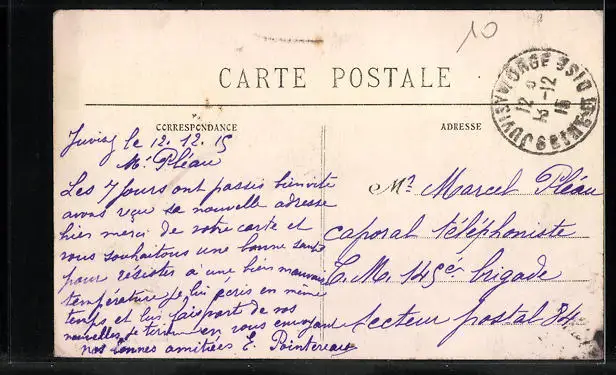 10
CARTE POSTALE
CORRESPONDANCE
ADRESSE
JUVISY-S-ORGE SEINE
12 -12 15
Juvisy le 12.12.15
Mr Pléau
Les 7 jours ont passés bien vite
avons reçu sa nouvelle adresse
hier merci de votre carte et
vous souhaitons une bonne santé
pour résister à une bien mauvaise
température je lui écris en même
temps et lui fais part de vos
nouvelles je termine en vous envoyant
nos bonnes amitiées E. Pointereau
Mr Marcel Pléau
caporal téléphoniste
E.M. 145e brigade
Secteur postal 34